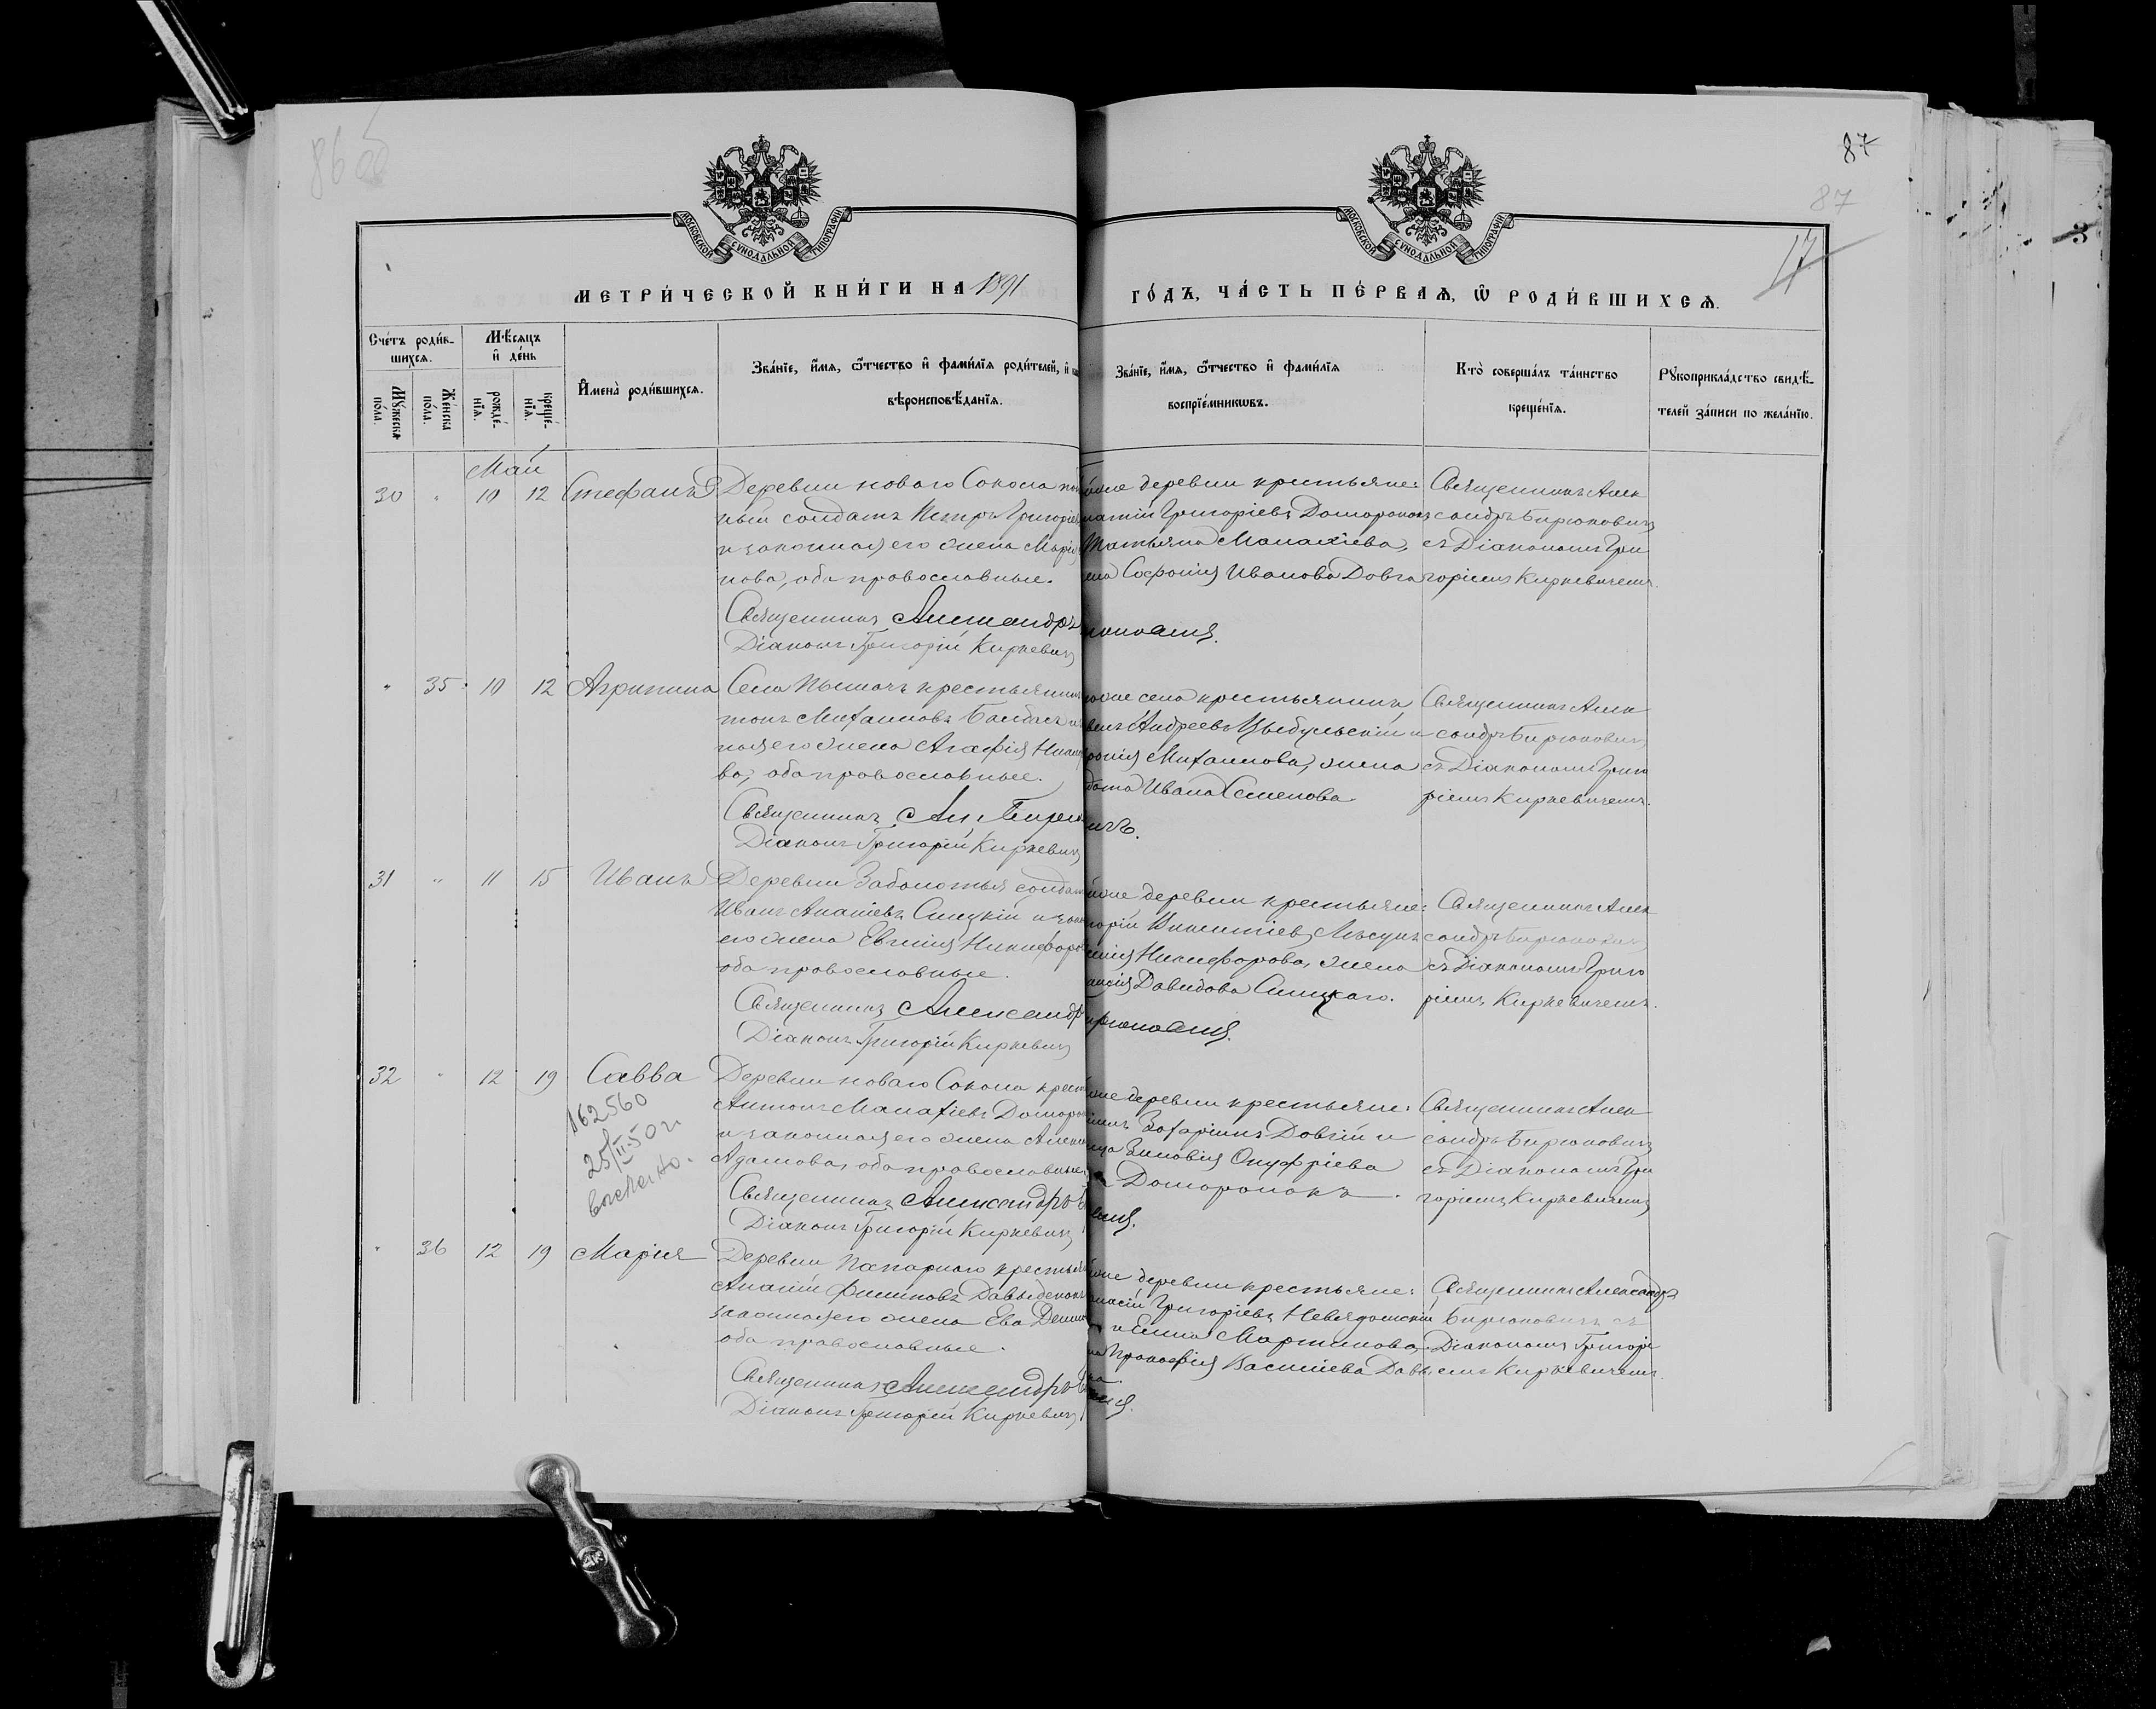 86 об
87
87
17
МОСКОВСКОЙ СѴНОДАЛЬНОЙ ТИПОГРАФІИ
МОСКОВСКОЙ СѴНОДАЛЬНОЙ ТИПОГРАФІИ
МЕТРИ́ЧЕСКОЙ КНИ́ГИ НА 1891
ГО́ДЪ, ЧА́СТЬ ПЕ́РВАЯ, Ѿ РОДИ́ВШИХСЯ.
Сче́тъ роди́в-
шихся.
Мꙋ́жеска
по́ла.
Же́нска
по́ла.
Мѣ́сяцъ
и҆ де́нь
рожде́-
нїя.
креще́-
нїя.
И҆мена̀ роди́вшихся.
Зва́нїе, и҆́мя, ѻ҆́тчество и҆ фами́лїя роди́телей, и҆
вѣроисповѣ́данїя.
Зва́нїе, и҆́мя, ѻ҆́тчество и҆ фами́лїя
воспрїе́мникѡвъ.
Кто̀ соверша́лъ та́инство
креще́нїя.
Рꙋкоприкла́дство свидѣ́-
телей за́писи по жела́нїю.
Май
30 " 10 12 Стефанъ
Деревни новаго Сокола
ный солдатъ Петръ Григоріев
и законная его жена Марія
нова, оба православные.
Священникъ Александръ
Діаконъ Григорій Киркевичъ
деревни крестьяне:
Григоріевъ Доморонокъ
Татьяна Манахіева,
Софронія Иванова Довга
Священникъ Алек
сандръ Бирюковичъ
съ Діакономъ Гри
горіемъ Киркевичемъ.
" 35 10 12 Агрипина
Села Пышачъ крестьянинъ
тонъ Михаиловъ
ная его жена Агафія
ва, оба православные.
Священникъ Ал. Бирюк
Діаконъ Григорій Киркевичъ
села крестьянинъ
Андреевъ Цыбульскій и
Михаилова, жена
Ивана Семенова
ичъ.
Священникъ Алек
сандръ Бирюковичъ
съ Діакономъ Григо
ріемъ Киркевичемъ.
31 " 11 15 Иванъ
Деревни Заболотья солдат
Иванъ Ананіевъ Слицкій и зако
его жена Евгенія Никифоро
оба православные.
Священникъ Александр
Діаконъ Григорій Киркевичъ
деревни крестьяне:
горій Викентіевъ Лысунъ
Никифорова, жена
Давидова Слицкаго.
Священникъ Алек
сандръ Бирюкович
съ Діакономъ Григо
ріемъ Киркевичемъ.
32 " 12 19 Савва
162560
25/II-50 г
Деревни новаго Сокола крест
Антонъ Манахіевъ Доморо
и законная его жена Алекс
Адамова, оба православные.
Священникъ Александръ
Діаконъ Григорій Киркевичъ
деревни крестьяне:
Захаріинъ Довгій и
Зиновія Онуфріева
Доморонокъ.
Священникъ Алек
сандръ Бирюковичъ
съ Діакономъ Гри
горіемъ Киркевичемъ
" 36 12 19 Марія
Деревни Папарнаго крестья
Ананій Филиповъ Давыденокъ
законная его жена Ева
оба православные.
Священникъ Александръ
Діаконъ Григорій Киркевичъ
деревни крестьяне:
Григоріевъ
и Елена Мартинова,
Прокофія Василіева Давы
Священникъ Александръ
Бирюковичъ съ
Діакономъ Григорі
емъ Киркевичемъ.